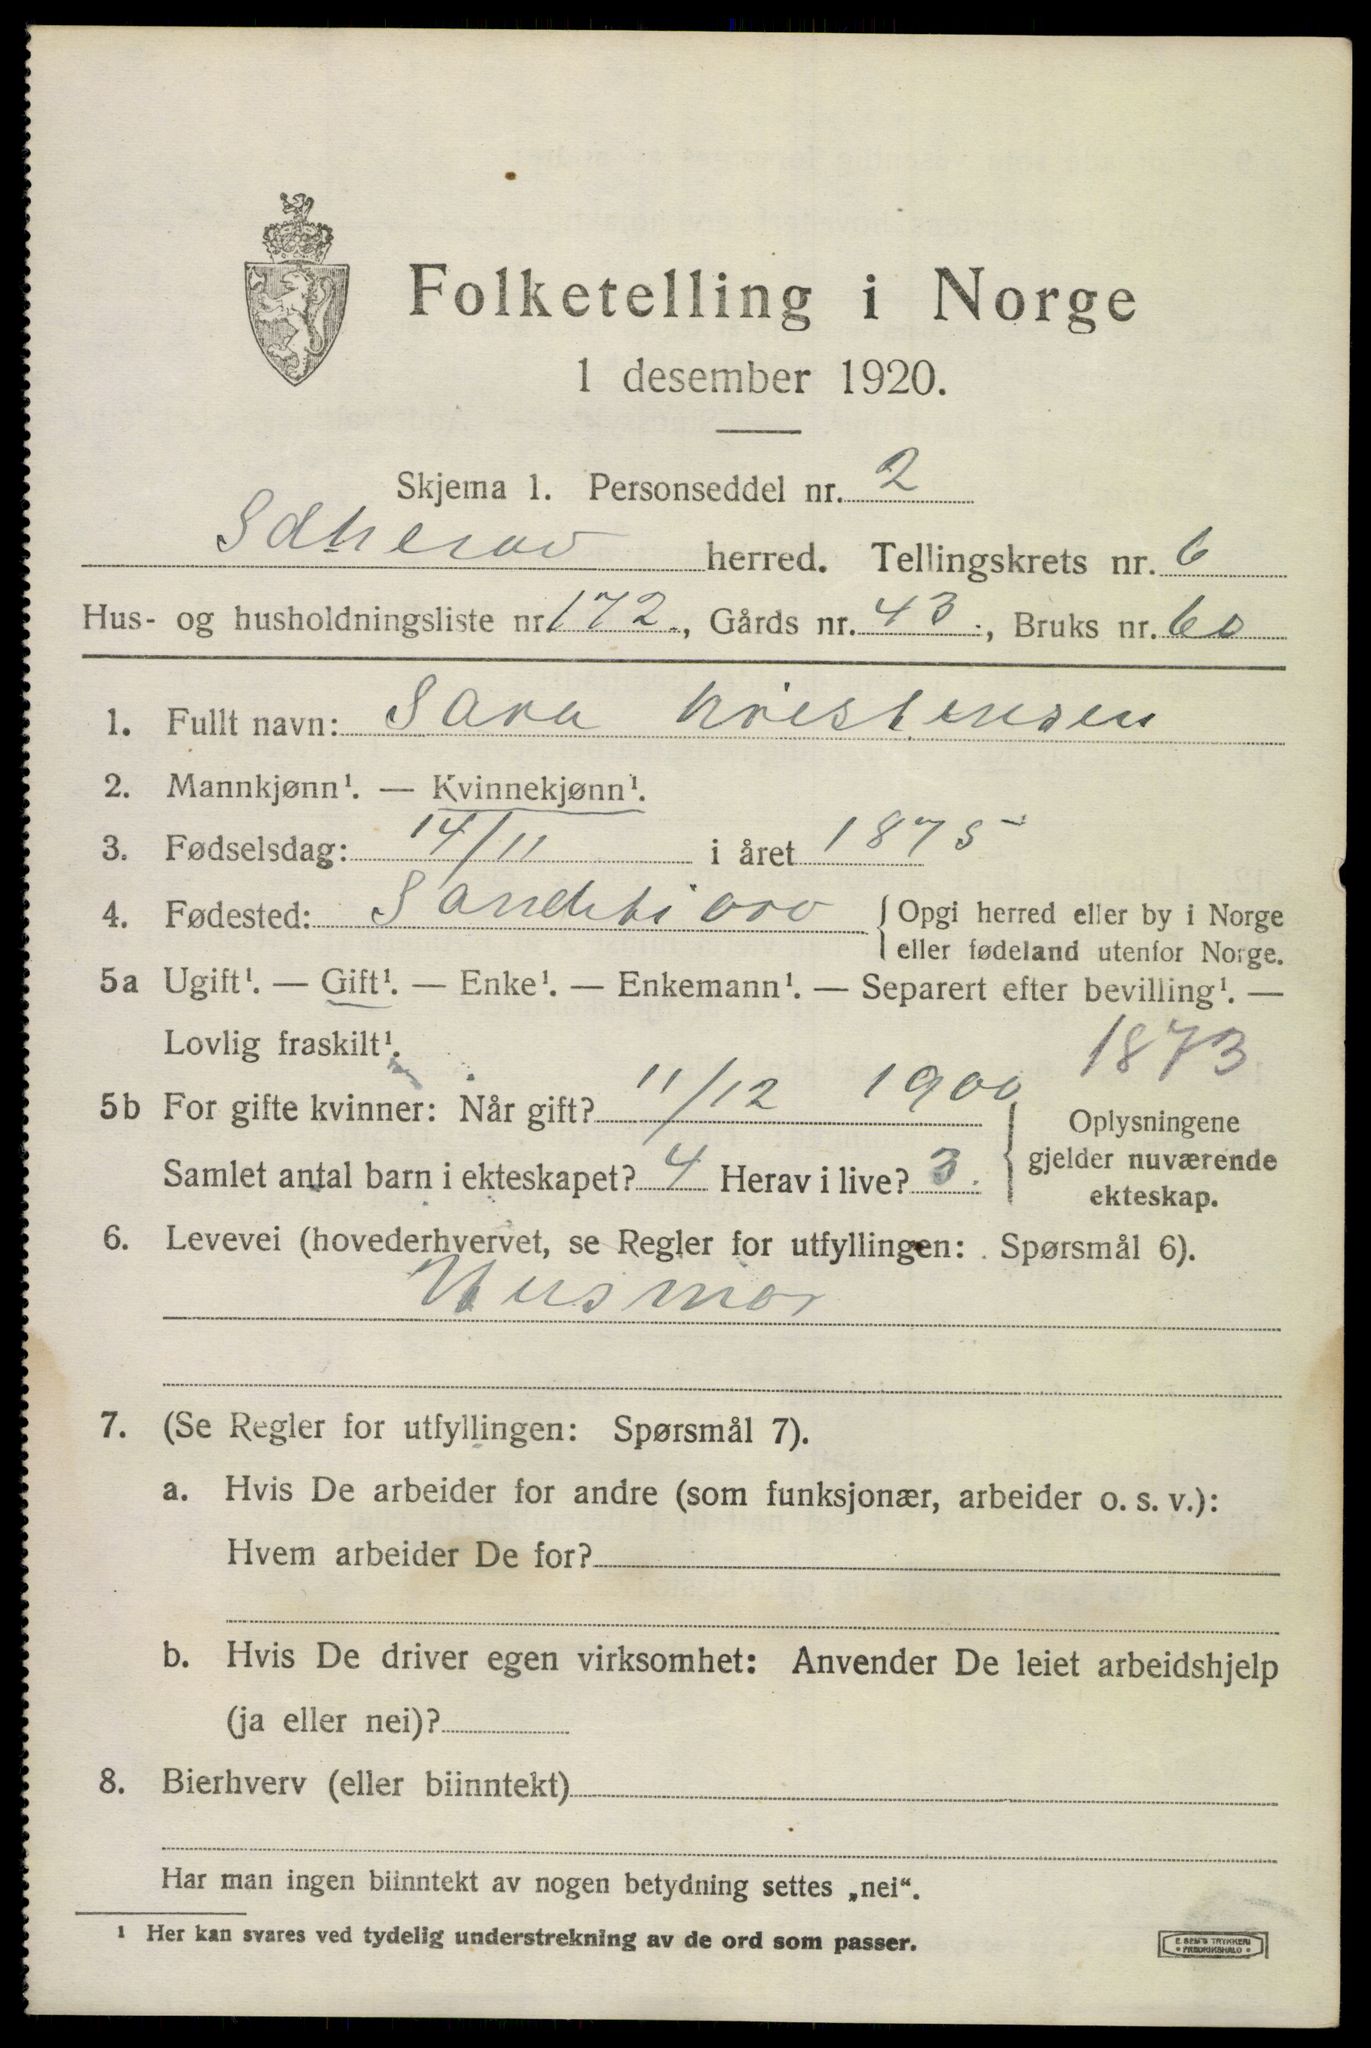 Folketelling i Norge
1 desember 1920.
Skjema 1. Personseddel nr. 2
herred. Tellingskrets nr. 6
Hus- og husholdningsliste nr. 172, Gårds nr. 43, Bruks nr. 60
1. Fullt navn: Sara Kristensen
2. Mannkjønn¹. — Kvinnekjønn¹.
3. Fødselsdag: 14/11 i året 1875
4. Fødested: { Opgi herred eller by i Norge
eller fødeland utenfor Norge.
5a Ugift¹. — Gift¹. — Enke¹. — Enkemann¹. — Separert efter bevilling¹. —
Lovlig fraskilt¹. 1873
5b For gifte kvinner: Når gift? 11/12 1900
Samlet antal barn i ekteskapet? 4 Herav i live? 3
{ Oplysningene
gjelder nuværende
ekteskap.
6. Levevei (hovederhvervet, se Regler for utfyllingen: Spørsmål 6).
Husmor
7. (Se Regler for utfyllingen: Spørsmål 7).
a. Hvis De arbeider for andre (som funksjonær, arbeider o. s. v.):
Hvem arbeider De for?
b. Hvis De driver egen virksomhet: Anvender De leiet arbeidshjelp
(ja eller nei)?
8. Bierhverv (eller biinntekt)
Har man ingen biinntekt av nogen betydning settes „nei“.
¹ Her kan svares ved tydelig understrekning av de ord som passer.
E. SEM'S TRYKKERI
• FREDRIKSHALD •